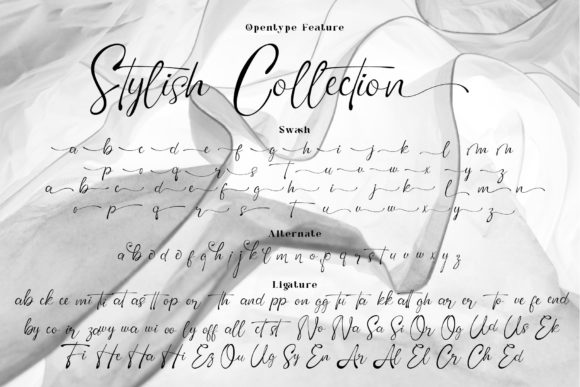 Opentype Feature
Stylish Collection
Swash
a b c d e f g h i j k l m n
p o q r s t u v w x y z
a b c d e f g h i j k l m n
o p q r s t u v w x y z
Alternate
a b c d e f g h i j k l m n o p q r s t u v w x y z
Ligature
ab ck ce mi ti at as ll op or th and pp on gg fi ta kk att gh ar er to ve fe end
by co ir wa wi oo ly off all ct st No Na Sa Si Or Og Ud Us Ek
Fi He Ha Hi Ez Ou Ug Sy En Ar Al El Cr Ch Ed